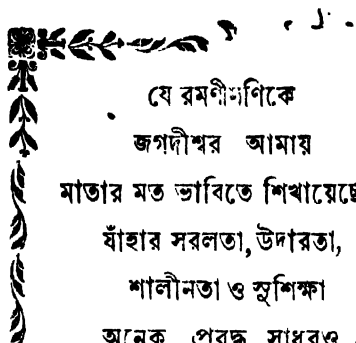 যে রমণীমণিকে
জগদীশ্বর আমায়
মাতার মত ভাবিতে শিখায়েছে
যাঁহার সরলতা, উদারতা,
শালীনতা ও সুশিক্ষা
অনেক প্রবৃদ্ধ সাধবও